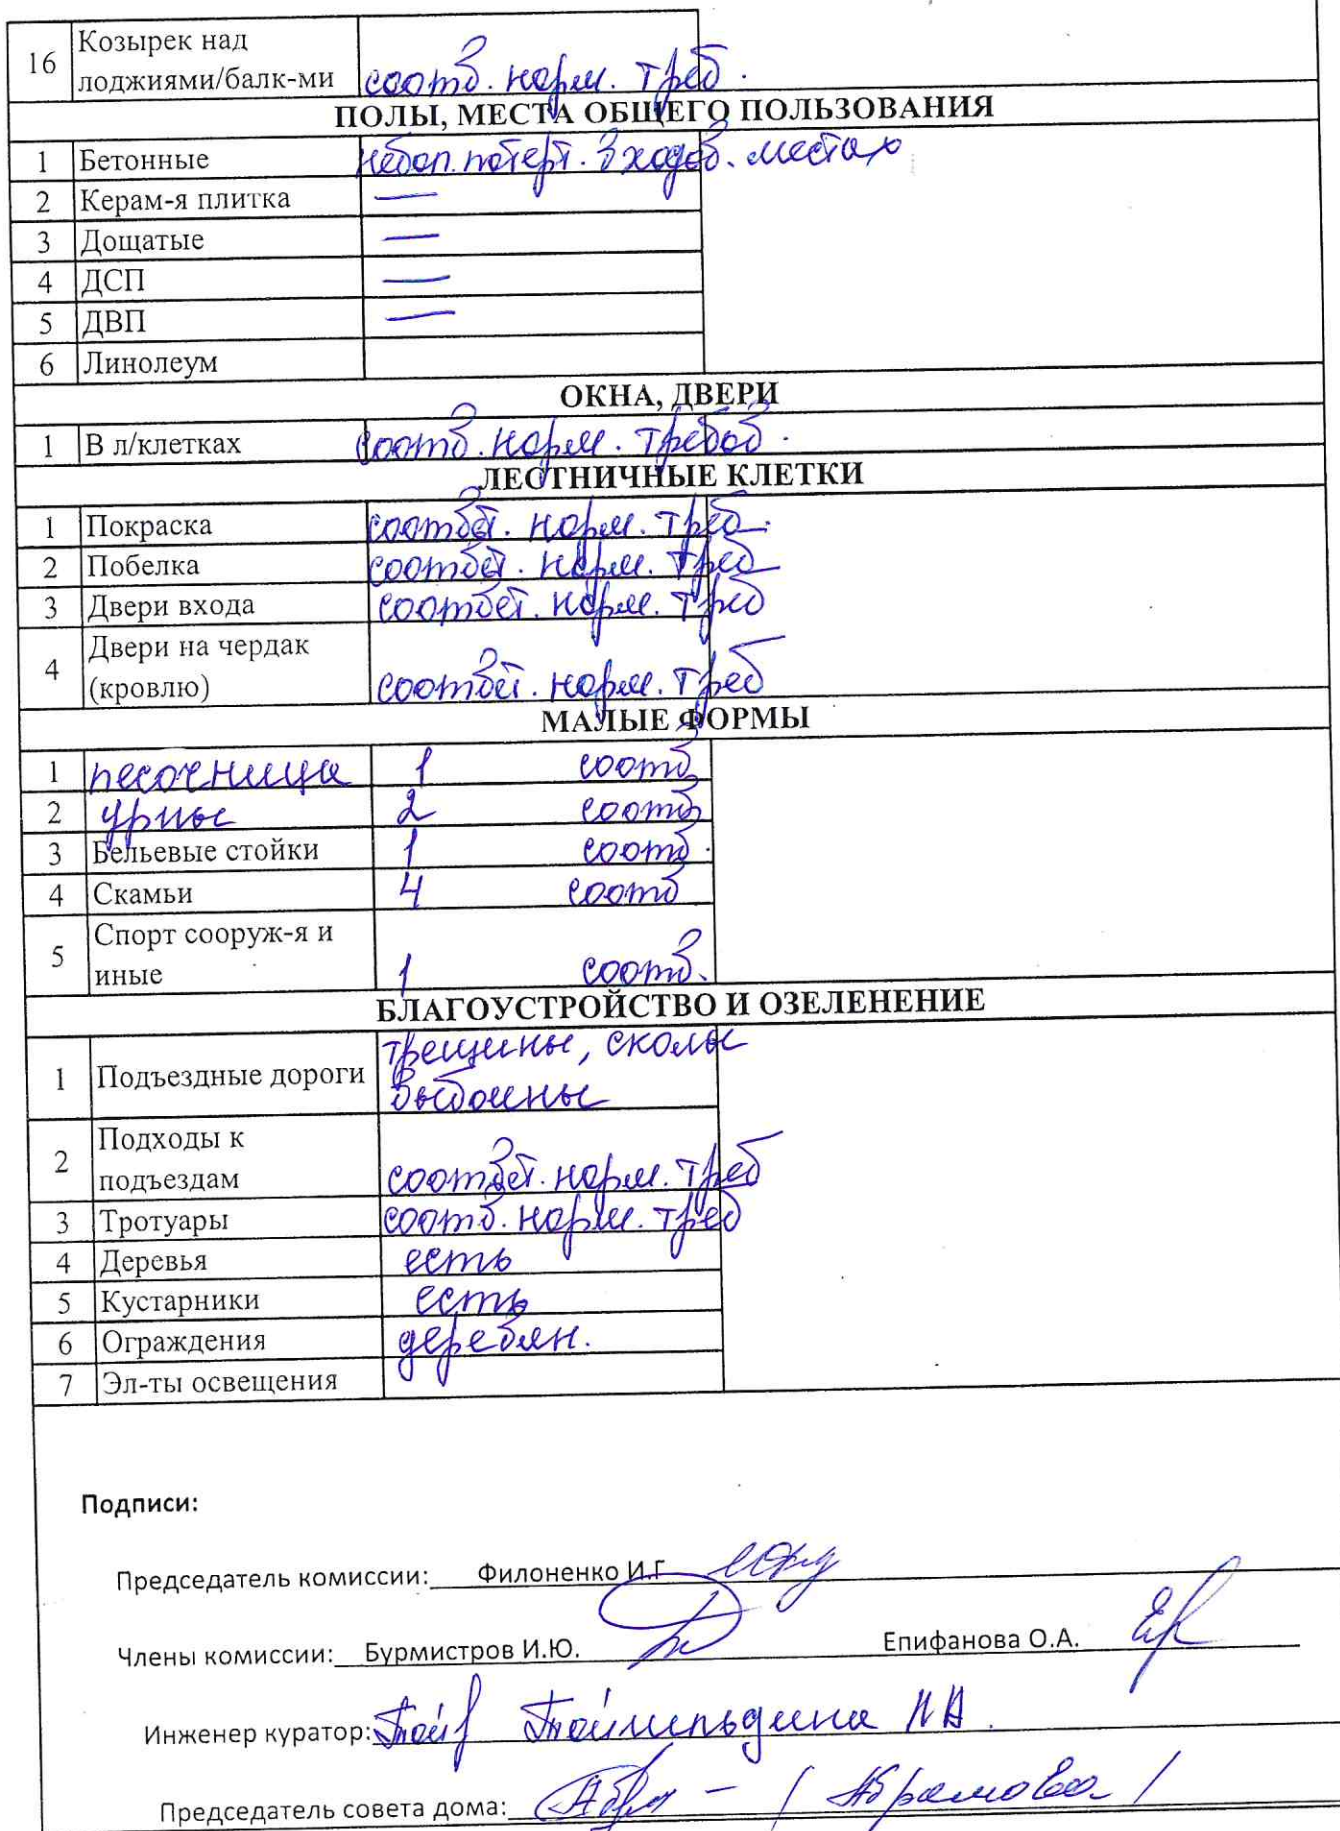 16 Козырек над
лоджиями/балк-ми соотв. норм. треб.
ПОЛЫ, МЕСТА ОБЩЕГО ПОЛЬЗОВАНИЯ
1 Бетонные небол. потерт. в ходов. местах
2 Керам-я плитка —
3 Дощатые —
4 ДСП —
5 ДВП —
6 Линолеум
ОКНА, ДВЕРИ
1 В л/клетках соотв. норм. требов.
ЛЕСТНИЧНЫЕ КЛЕТКИ
1 Покраска соответ. норм. треб.
2 Побелка соответ. норм. треб
3 Двери входа соответ. норм. треб
4 Двери на чердак
(кровлю) соответ. норм. треб
МАЛЫЕ ФОРМЫ
1 песочница 1 соотв
2 урны 2 соотв
3 Бельевые стойки 1 соотв.
4 Скамьи 4 соотв
5 Спорт сооруж-я и
иные 1 соотв.
БЛАГОУСТРОЙСТВО И ОЗЕЛЕНЕНИЕ
1 Подъездные дороги трещины, сколы
выбоины
2 Подходы к
подъездам соответ. норм. треб
3 Тротуары соотв. норм. треб
4 Деревья есть
5 Кустарники есть
6 Ограждения деревян.
7 Эл-ты освещения
Подписи:
Председатель комиссии: Филоненко И.Г
Члены комиссии: Бурмистров И.Ю. Епифанова О.А.
Инженер куратор:
Председатель совета дома: / Абрамова /